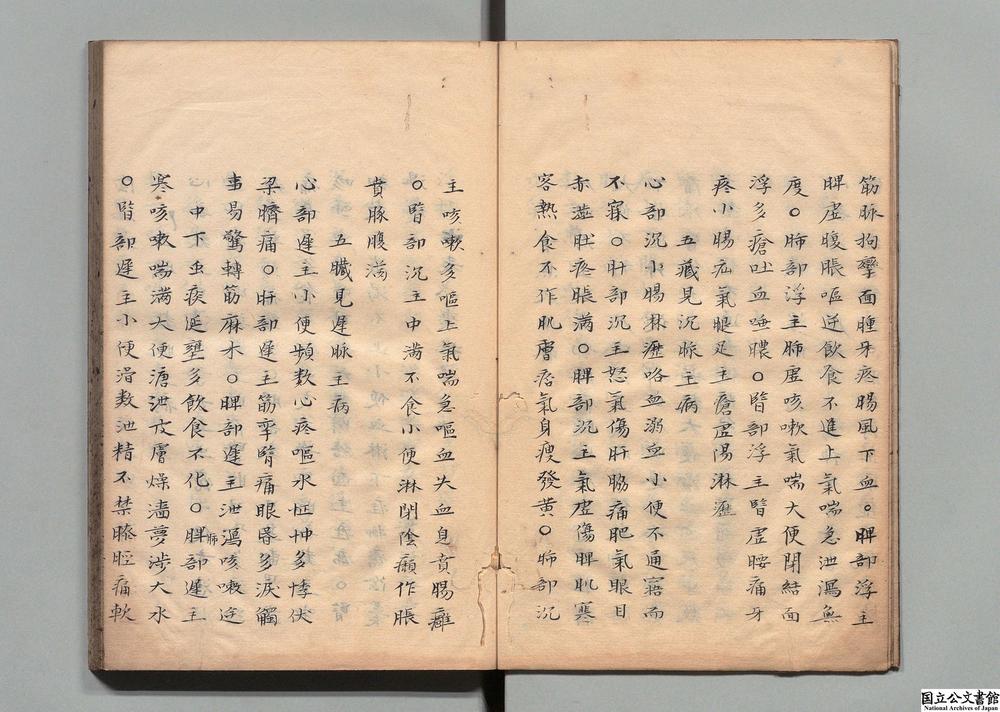 筋脉拘攣面腫牙疼腸風下血○脾部浮主
脾虚腹脹嘔逆飲食不進上氣喘急泄瀉無
度○肺部浮主肺虚咳嗽氣喘大便閉結面
浮多瘡吐血唾膿○腎部浮主腎虚腰痛牙
疼小腸疝氣眼足主瘡虚陽淋瀝
五藏見沉脉主病
心部沉小腸淋瀝咯血溺血小便不通寤而
不寐○肝部沉主怒氣傷肝脇痛肥氣眼目
赤澁肚疼脹滿○脾部沉主氣虚傷脾肌寒
客熱食不作肌膚痞氣身瘦發黄○肺部沉
主咳嗽多嘔上氣喘急嘔血失血息賁腸癰
○腎部沉主中滿不食小便淋閉陰㿗作脹
賁豚腹滿
五臓見遲脉主病
心部遲主小便頻数心疼嘔水怔忡多悸伏
梁臍痛○肝部遲主筋牽腎痛眼昏多淚觸
事易驚轉筋麻木○脾部遲主泄瀉咳嗽逆
心中下虫痰涎壅多飲食不化○脾部遲主
肺
寒咳嗽喘滿大便溏泄皮膚燥濇夢涉大水
○腎部遲主小便滑数泄精不禁膝脛痛軟
国立公文書館
National Archives of Japan